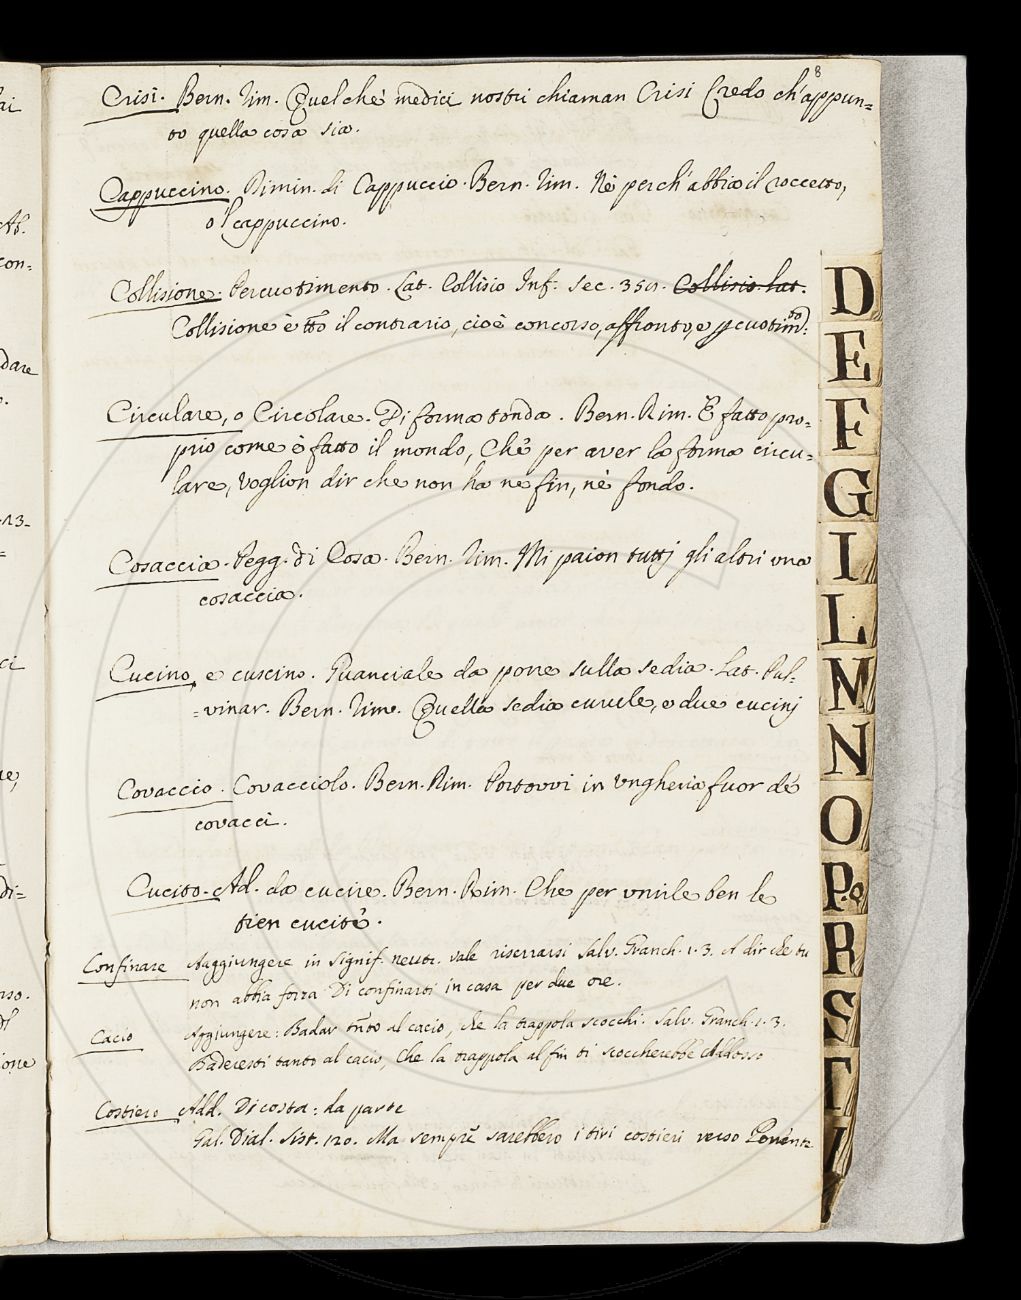 8
Crisi. Bern. rim. Quel che i medici nostri chiaman Crisi Credo ch'appun=
to quella cosa sia.
Cappuccino. Dimin. di Cappuccio. Bern. rim. Nè perch'abbia il roccetto,
o 'l cappuccino.
Collisione. Percuotimento. Lat. Collisio Inf. sec. 359. Collisio. lat.
Collisione è tto il contrario, cioè concorso, affronto, e pcuotimto.
Circulare, o Circolare. Di forma tonda. Bern. Rim. È fatto pro=
prio come è fatto il mondo, Che per aver la forma circu=
lare, Voglion dir che non ha nè fin, nè fondo.
Cosaccia. Pegg. di Cosa. Bern. rim. Mi paion tuttj gli altri una
cosaccia.
Cucino, e cuscino. Guanciale da porre sulla sedia. Lat. Pul=
=vinar. Bern. rime. Quella sedia curule, e due cucinj
Covaccio. Covacciolo. Bern. Rim. Portovvi in Ungheria fuor de'
covacci.
Cucito. Ad. da cucire. Bern. Rim. Che per unirle ben le
tien cucite.
Confinare Aggiungere in signif. neutr. vale riserrarsi Salv. Granch. 1. 3. A dir che tu
non abbia forza Di confinarti in casa per due ore.
Cacio Aggiungere: Badar tanto al cacio, che la trappola scocchi. Salv. Granch. 1. 3.
Baderesti tanto al cacio, Che la trappola al fin ti scoccherebbe Addosso
Costiero Add. Di costa: da parte
Gal. Dial. Sist. 120. Ma sempre sarebbero i tiri costieri verso Ponente
ai
Ab.
con=
dare
13.
ci
di=
rso.
ione
D
E
F
G
I
L
M
N
O
P.Q
R
S
T
V